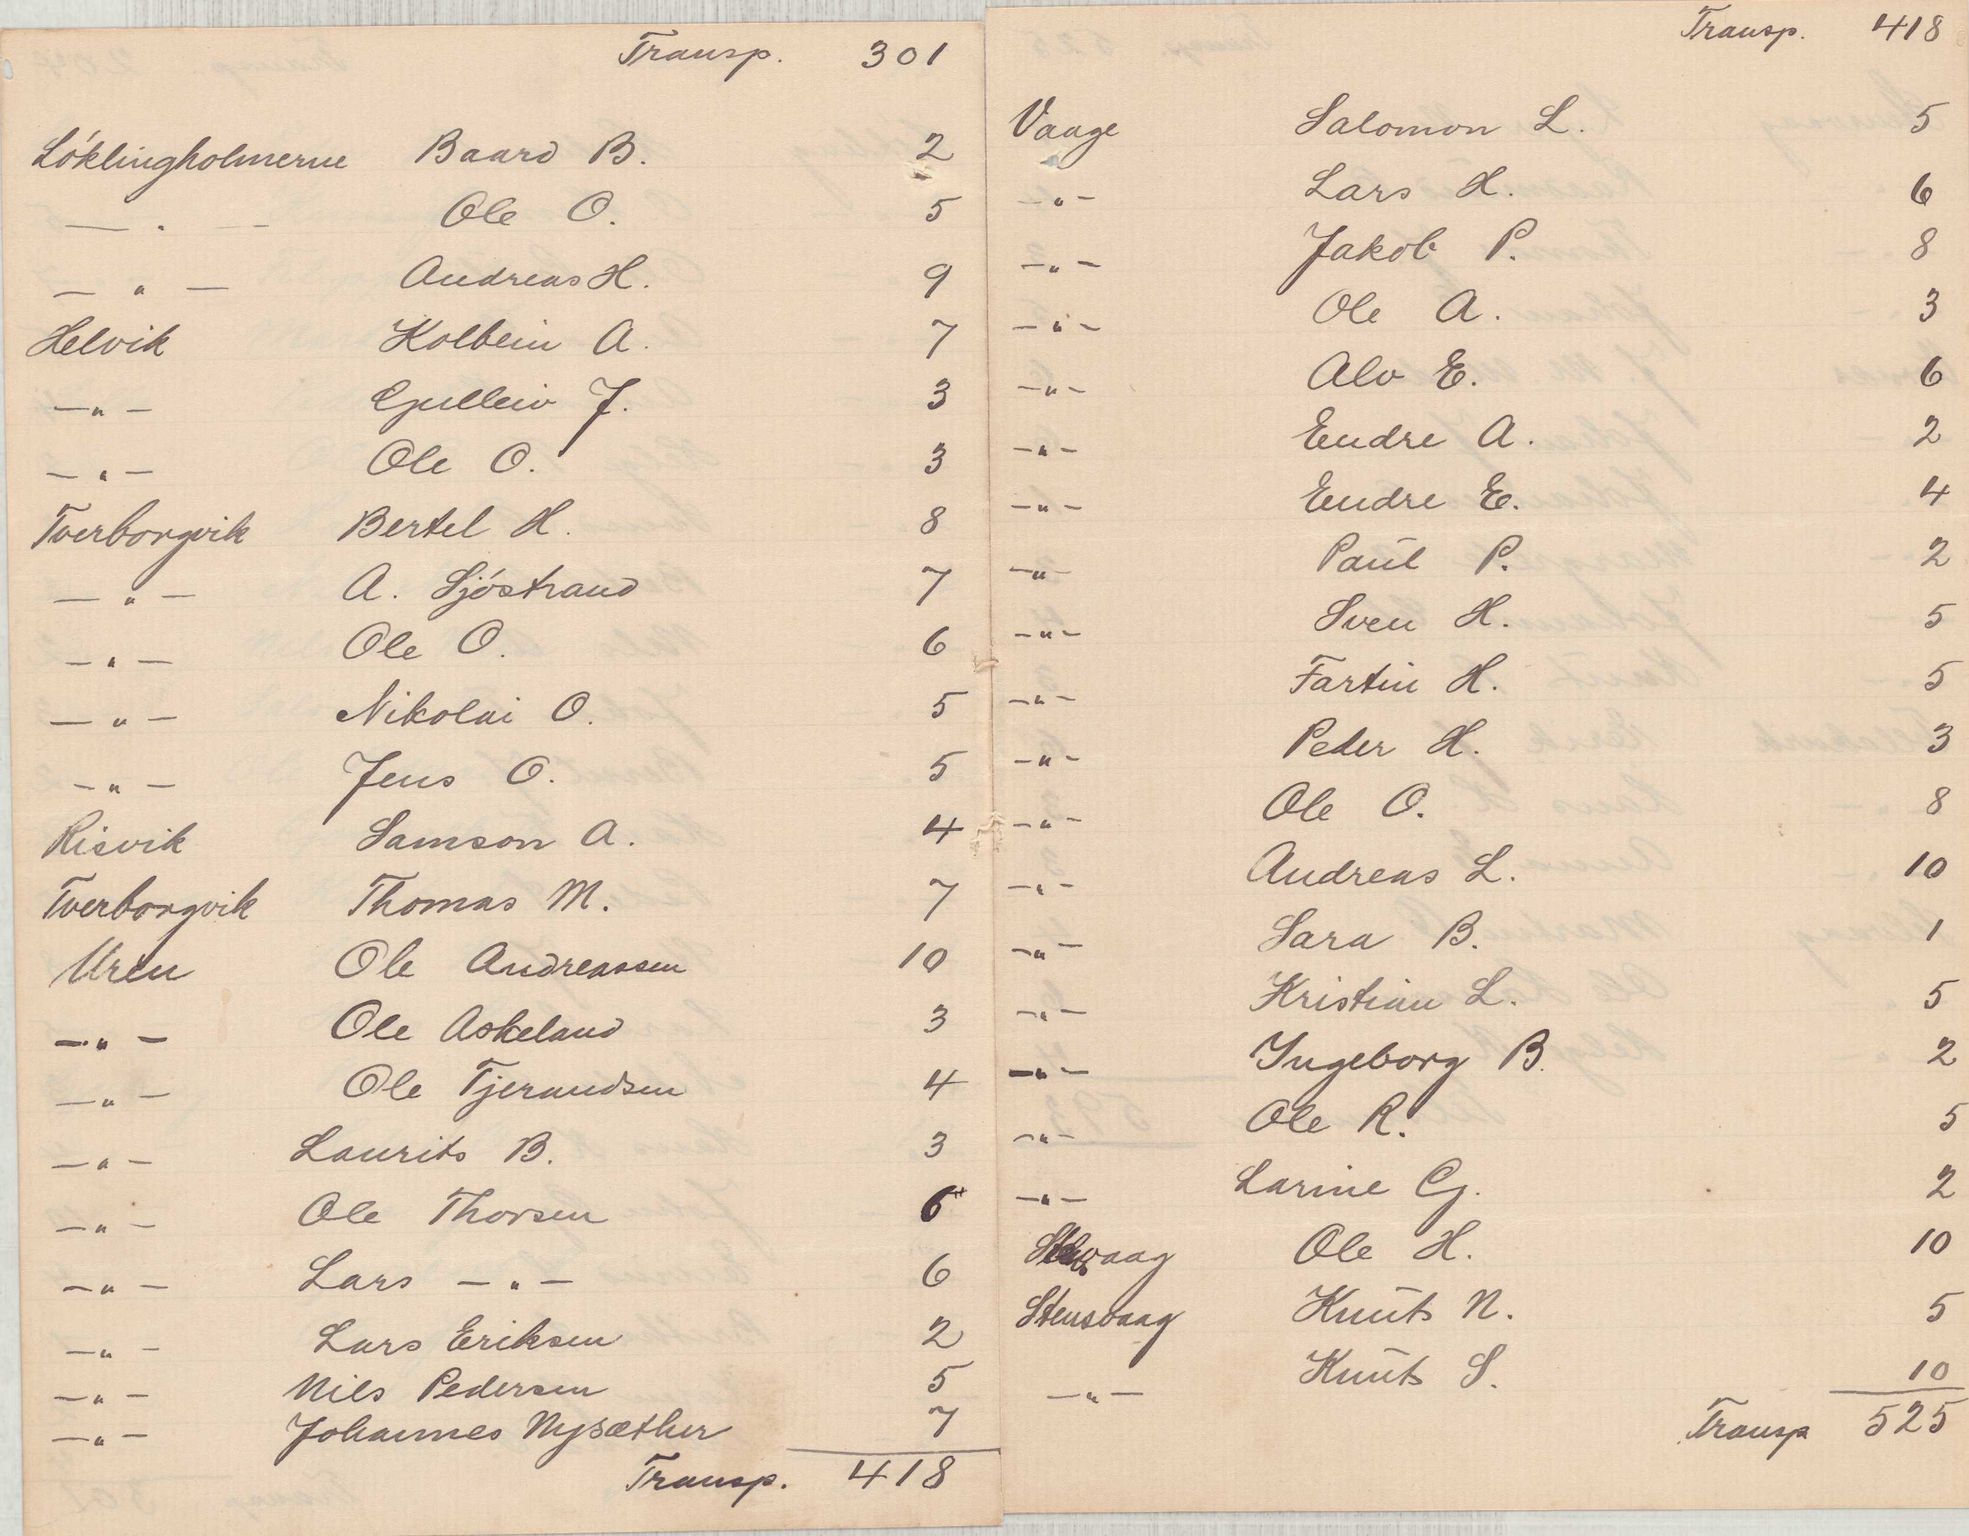 Transp. 301
Löklingholmerne Baard B. 2
— " — Ole O. 5
— " — Andreas H. 9
Helvik Kolbein A. 7
— " — Gulleiv J. 3
— " — Ole O. 3
Tverborgvik Bertel H. 8
— " — A. Sjöstrand 7
— " — Ole O. 6
— " — Nikolai O. 5
— " — Jens O. 5
Risvik Samson A. 4
Tverborgvik Thomas M. 7
Uren Ole Andreassen 10
— " — Ole Askeland 3
— " — Ole Tjerandsen 4
— " — Laurits B. 3
— " — Ole Thorsen 6
— " — Lars — " — 6
— " — Lars Eriksen 2
— " — Nils Pedersen 5
— " — Johannes Nysæther 7
Transp. 418
Transp. 418
Vaage Salomon L. 5
— " — Lars H. 6
— " — Jakob P. 8
— " — Ole A. 3
— " — Alv E. 6
— " — Endre A. 2
— " — Endre E. 4
— " — Paul P. 2
— " — Sven H. 5
— " — Fartin H. 5
— " — Peder H. 3
— " — Ole O. 8
— " — Andreas L. 10
— " — Sara B. 1
— " — Kristian L. 5
— " — Ingeborg B. 2
— " — Ole R. 5
— " — Larine G. 2
Ole H. 10
Stensvaag Knut N. 5
— " — Knut S. 10
Transp 525